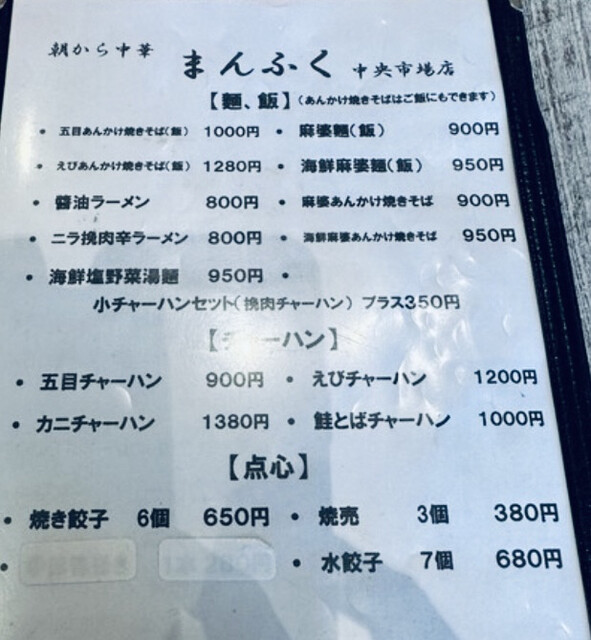 朝から中華 まんふく 中央市場店
【麺、飯】(あんかけ焼きそばはご飯にもできます)
・ 五目あんかけ焼きそば(飯) 1000円 ・ 麻婆麵(飯) 900円
・ えびあんかけ焼きそば(飯) 1280円 ・ 海鮮麻婆麵(飯) 950円
・ 醬油ラーメン 800円 ・ 麻婆あんかけ焼きそば 900円
・ ニラ挽肉辛ラーメン 800円 ・ 海鮮麻婆あんかけ焼きそば 950円
・ 海鮮塩野菜湯麵 950円 ・
小チャーハンセット(挽肉チャーハン) プラス350円
【チャーハン】
・ 五目チャーハン 900円 ・ えびチャーハン 1200円
・ カニチャーハン 1380円 ・ 鮭とばチャーハン 1000円
【点心】
・ 焼き餃子 6個 650円 ・ 焼売 3個 380円
・ 水餃子 7個 680円